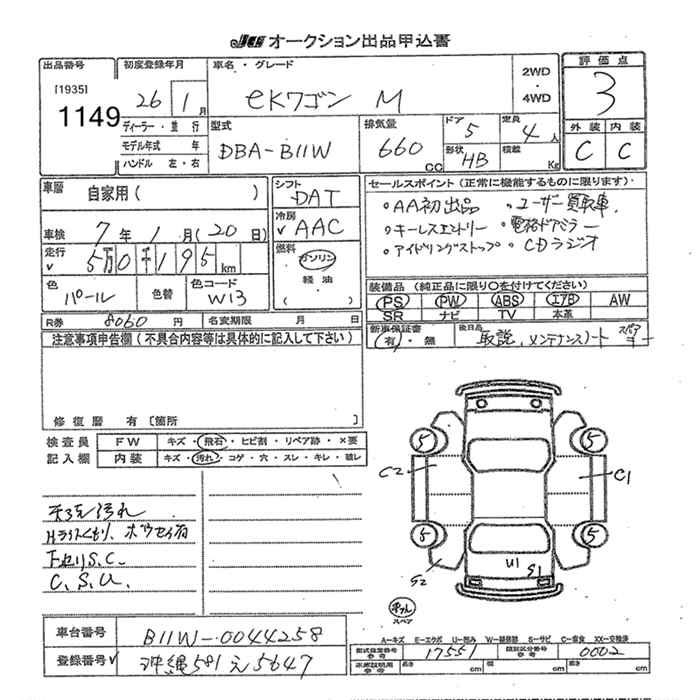 JU オークション出品申込書
出品番号
[1935]
1149
初度登録年月
26 1月
ディーラー・並行
モデル年式 年
ハンドル 左・右
車名・グレード
eKワゴン M
2WD
・
4WD
評価点
3
型式
DBA-B11W
排気量
660 cc
ドア 5
形状 HB
定員 4人
積載
外装 内装
C C
車歴 自家用( )
車検 7年1月(20日)
走行 5万0千195km
色 パール
色替
色コード W13
シフト DAT
冷房 AAC
燃料
ガソリン
軽油
( )
セールスポイント(正常に機能するものに限ります)
・AA初出品 ・ユーザー買取車
・キーレスエントリー ・電格ドアミラー
・アイドリングストップ ・CDラジオ
装備品(純正品に限り○を付けてください)
PS PW ABS エアB AW
SR ナビ TV 本革
R券 8060円 名変期限 月 日
新車保証書
有・無
後日品 取説、メンテナンスノート スペアキー
注意事項申告欄(不具合内容等は具体的に記入して下さい)
修復歴 有〔箇所 〕
検査員
記入欄
FW キズ・飛石・ヒビ割・リペア跡・×要
内装 キズ・汚れ・コゲ・穴・スレ・キレ・破レ
汚れ
Hライトくもり、ボウセイ有
S.C.
C.S.U.
5 5
C2 C1
5 5
S2 U1 S1
スペア
A-キズ E-エクボ U-凹み W-補修跡 S-サビ C-腐食 XX-交換済
車台番号 B11W-0044258
登録番号 沖縄581え5647
型式指定番号
参考
17551
類別区分番号
参考
0002
車庫証明用
参考
長さ cm 幅 cm 高さ cm